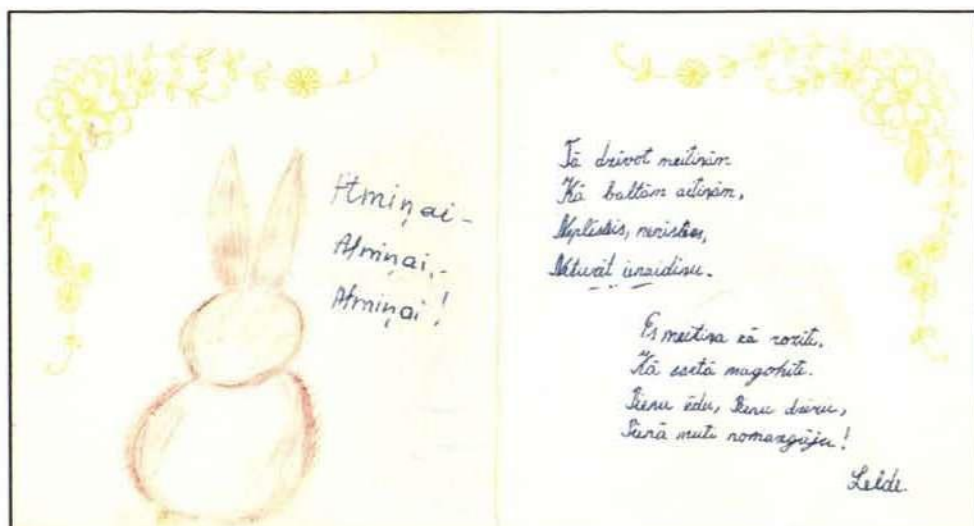 Atmiņai -
Atmiņai, -
Atmiņai !
Tā dzīvot meitiņām
Kā baltām aitiņām,
Neplēsties, nerieties,
Neturēt ienaidiņu.
Es meitiņa kā rozīte,
Kā sārtā magonīte.
Pienu ēdu, Pienu dzēru,
Pienā muti nomazgāju!
Lelde.